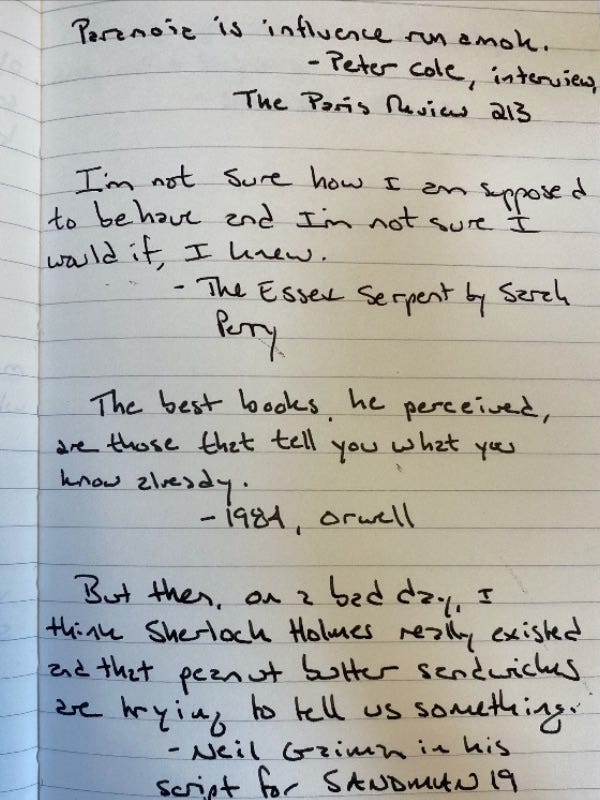 Paranoia is influence run amok.
- Peter Cole, interview,
The Paris Review 213
I'm not sure how I am supposed
to behave and I'm not sure I
would if, I knew.
- The Essex Serpent by Sarah
Perry
The best books, he perceived,
are those that tell you what you
know already.
- 1984, Orwell
But then, on a bad day, I
think Sherlock Holmes really existed
and that peanut butter sandwiches
are trying to tell us something.
- Neil Gaiman in his
script for SANDMAN 19